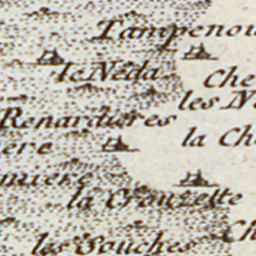 Tampenou
le Neda
Che
les N
Renardures
la Ch
ere
miere
la Crouzette
les Souches
Ch